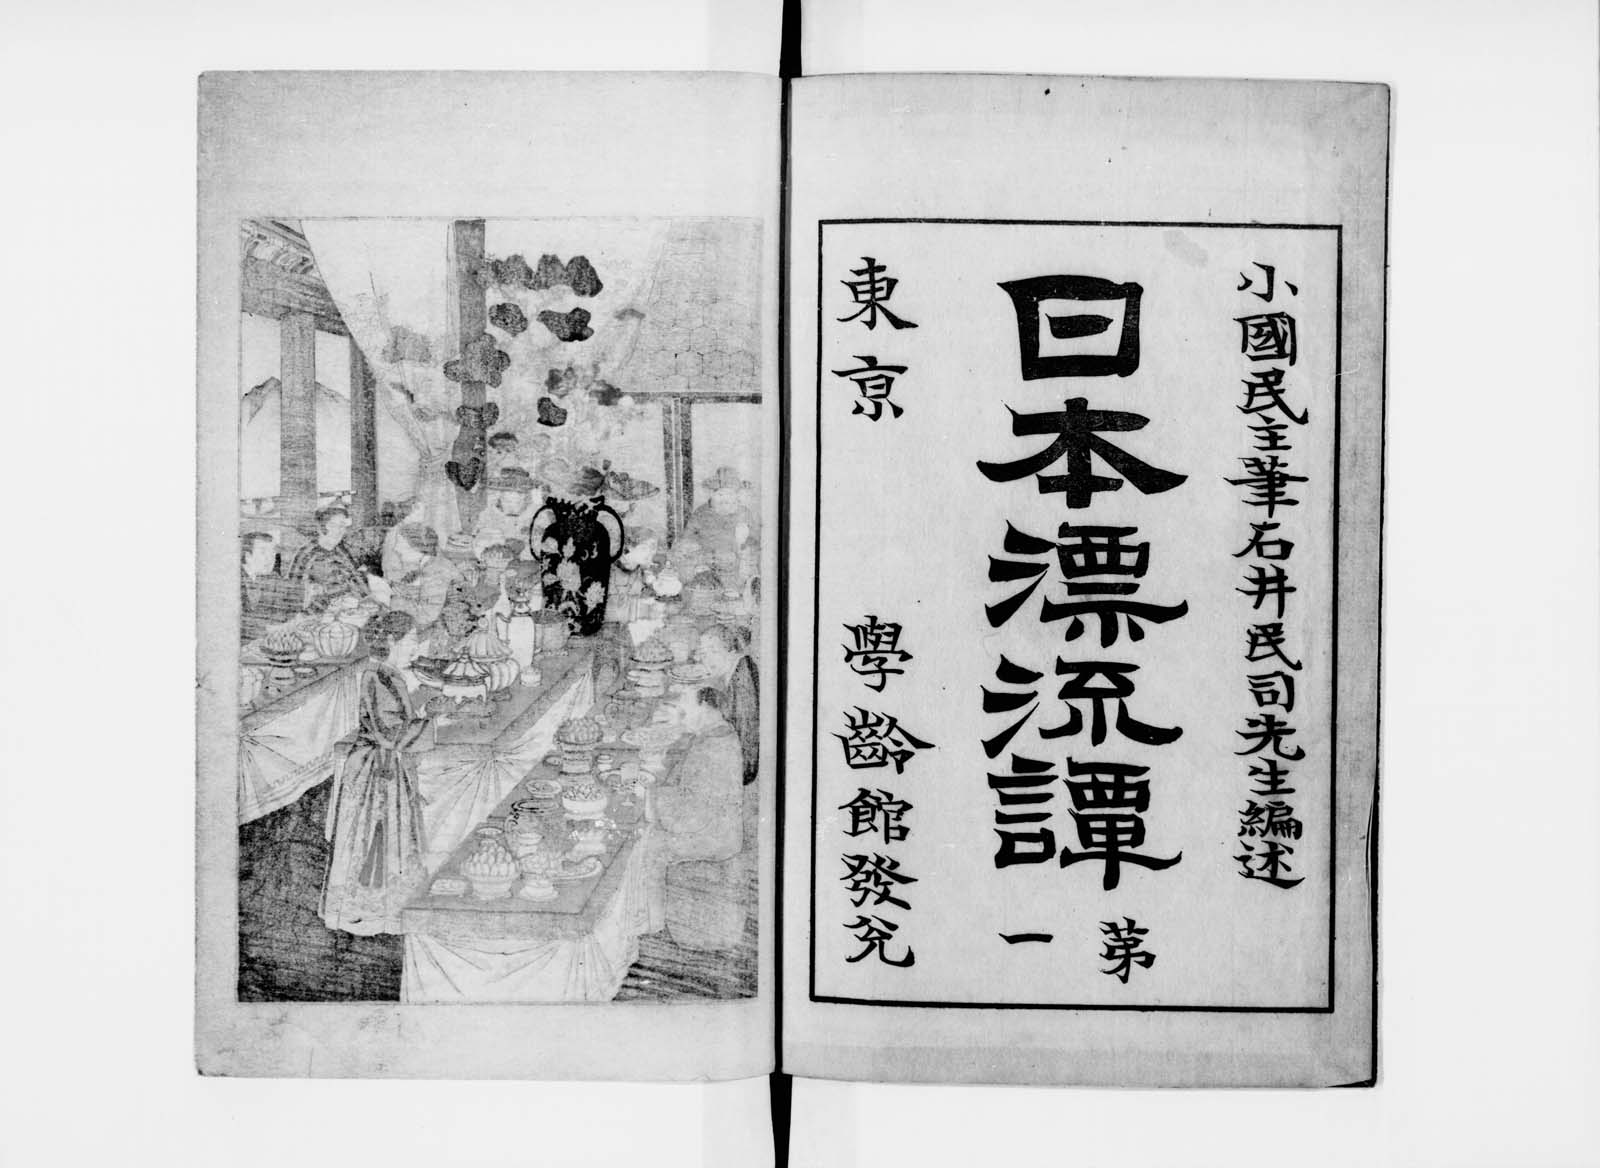 小國民主筆石井民司先生編述
日本漂流譚
第一
東京 學齡館發兌